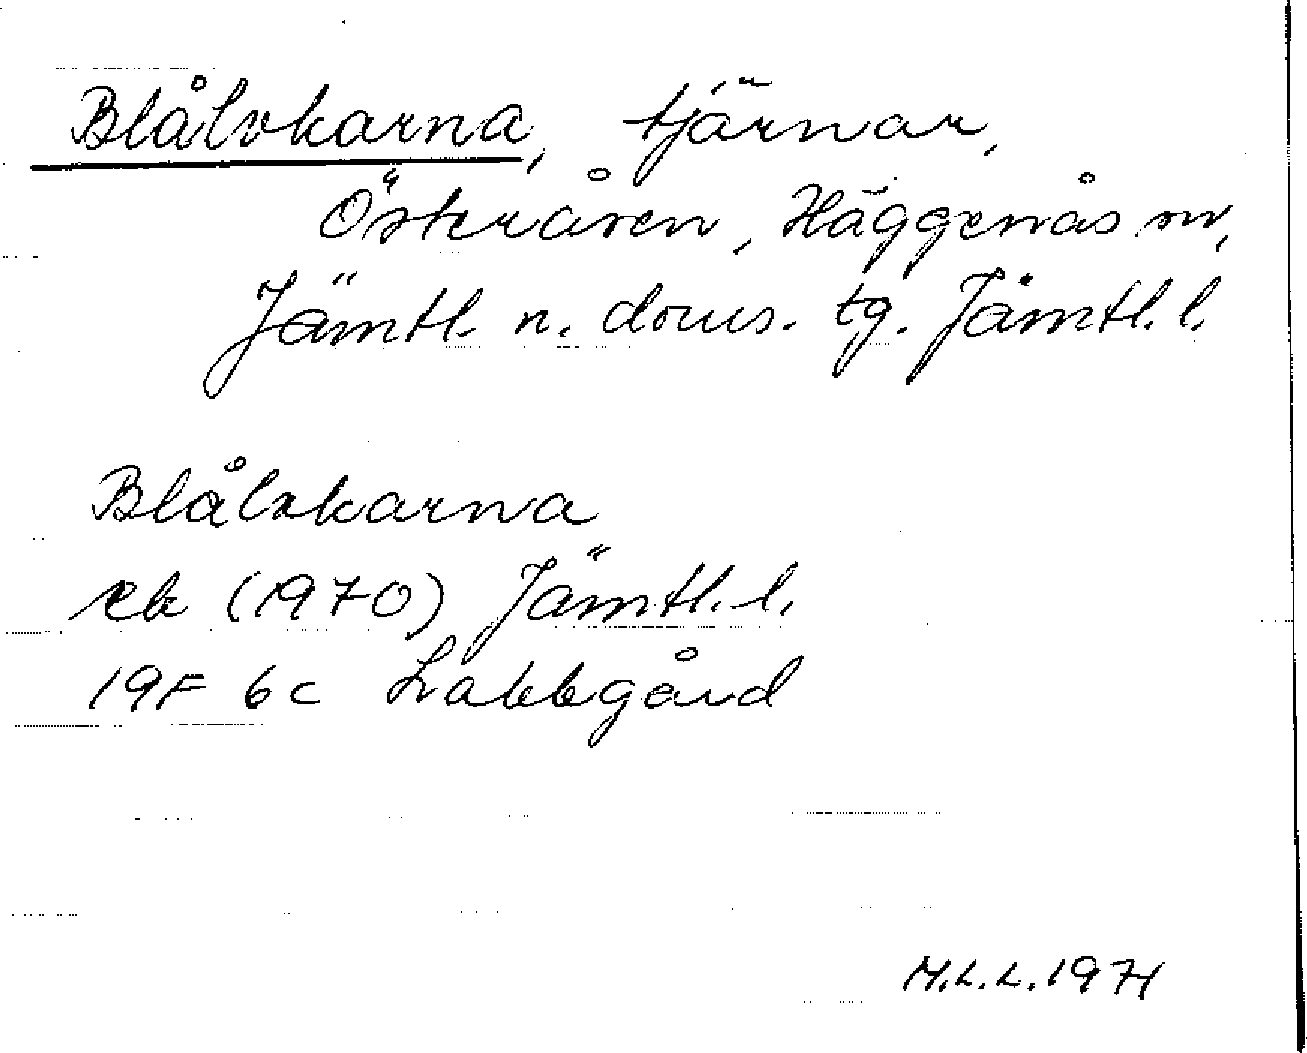 Blålvkarna, tjärnar,
Österåsen, Häggenås sn,
Jämtl. n. doms. tg. Jämtl. l.
Blålvkarna
ek (1970) Jämtl. l.
19F 6c Labbgård
M.L.L. 1974